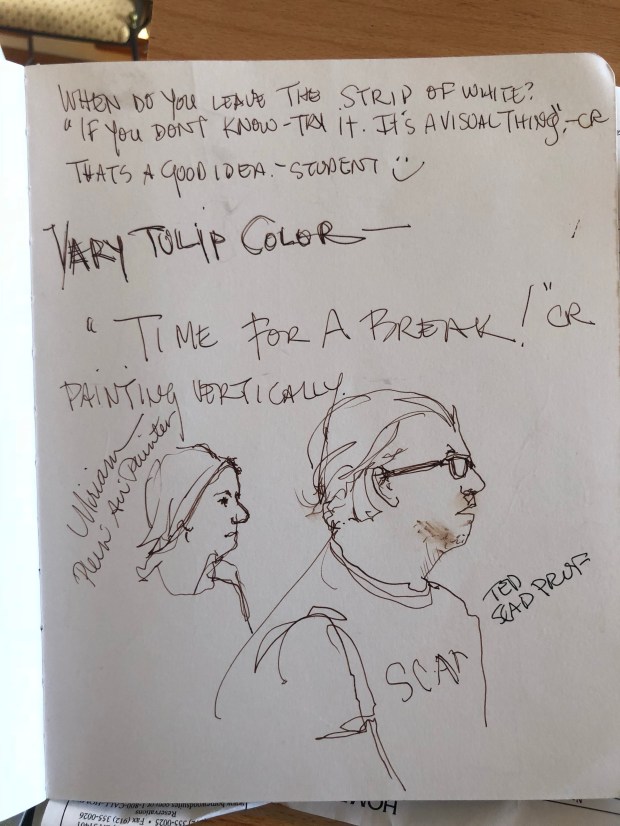 WHEN DO YOU LEAVE THE STRIP OF WHITE?
"IF YOU DONT KNOW-TRY IT. IT'S A VISUAL THING".-CR
THATS A GOOD IDEA.-STUDENT
VARY TULIP COLOR-
"TIME FOR A BREAK!" CR
PAINTING VERTICALLY.
Miriam
Plein Air Painter
TED
SCAD PROF
SCAD
HOM
Reservations
355-0025 • Fax (912) 355-0026